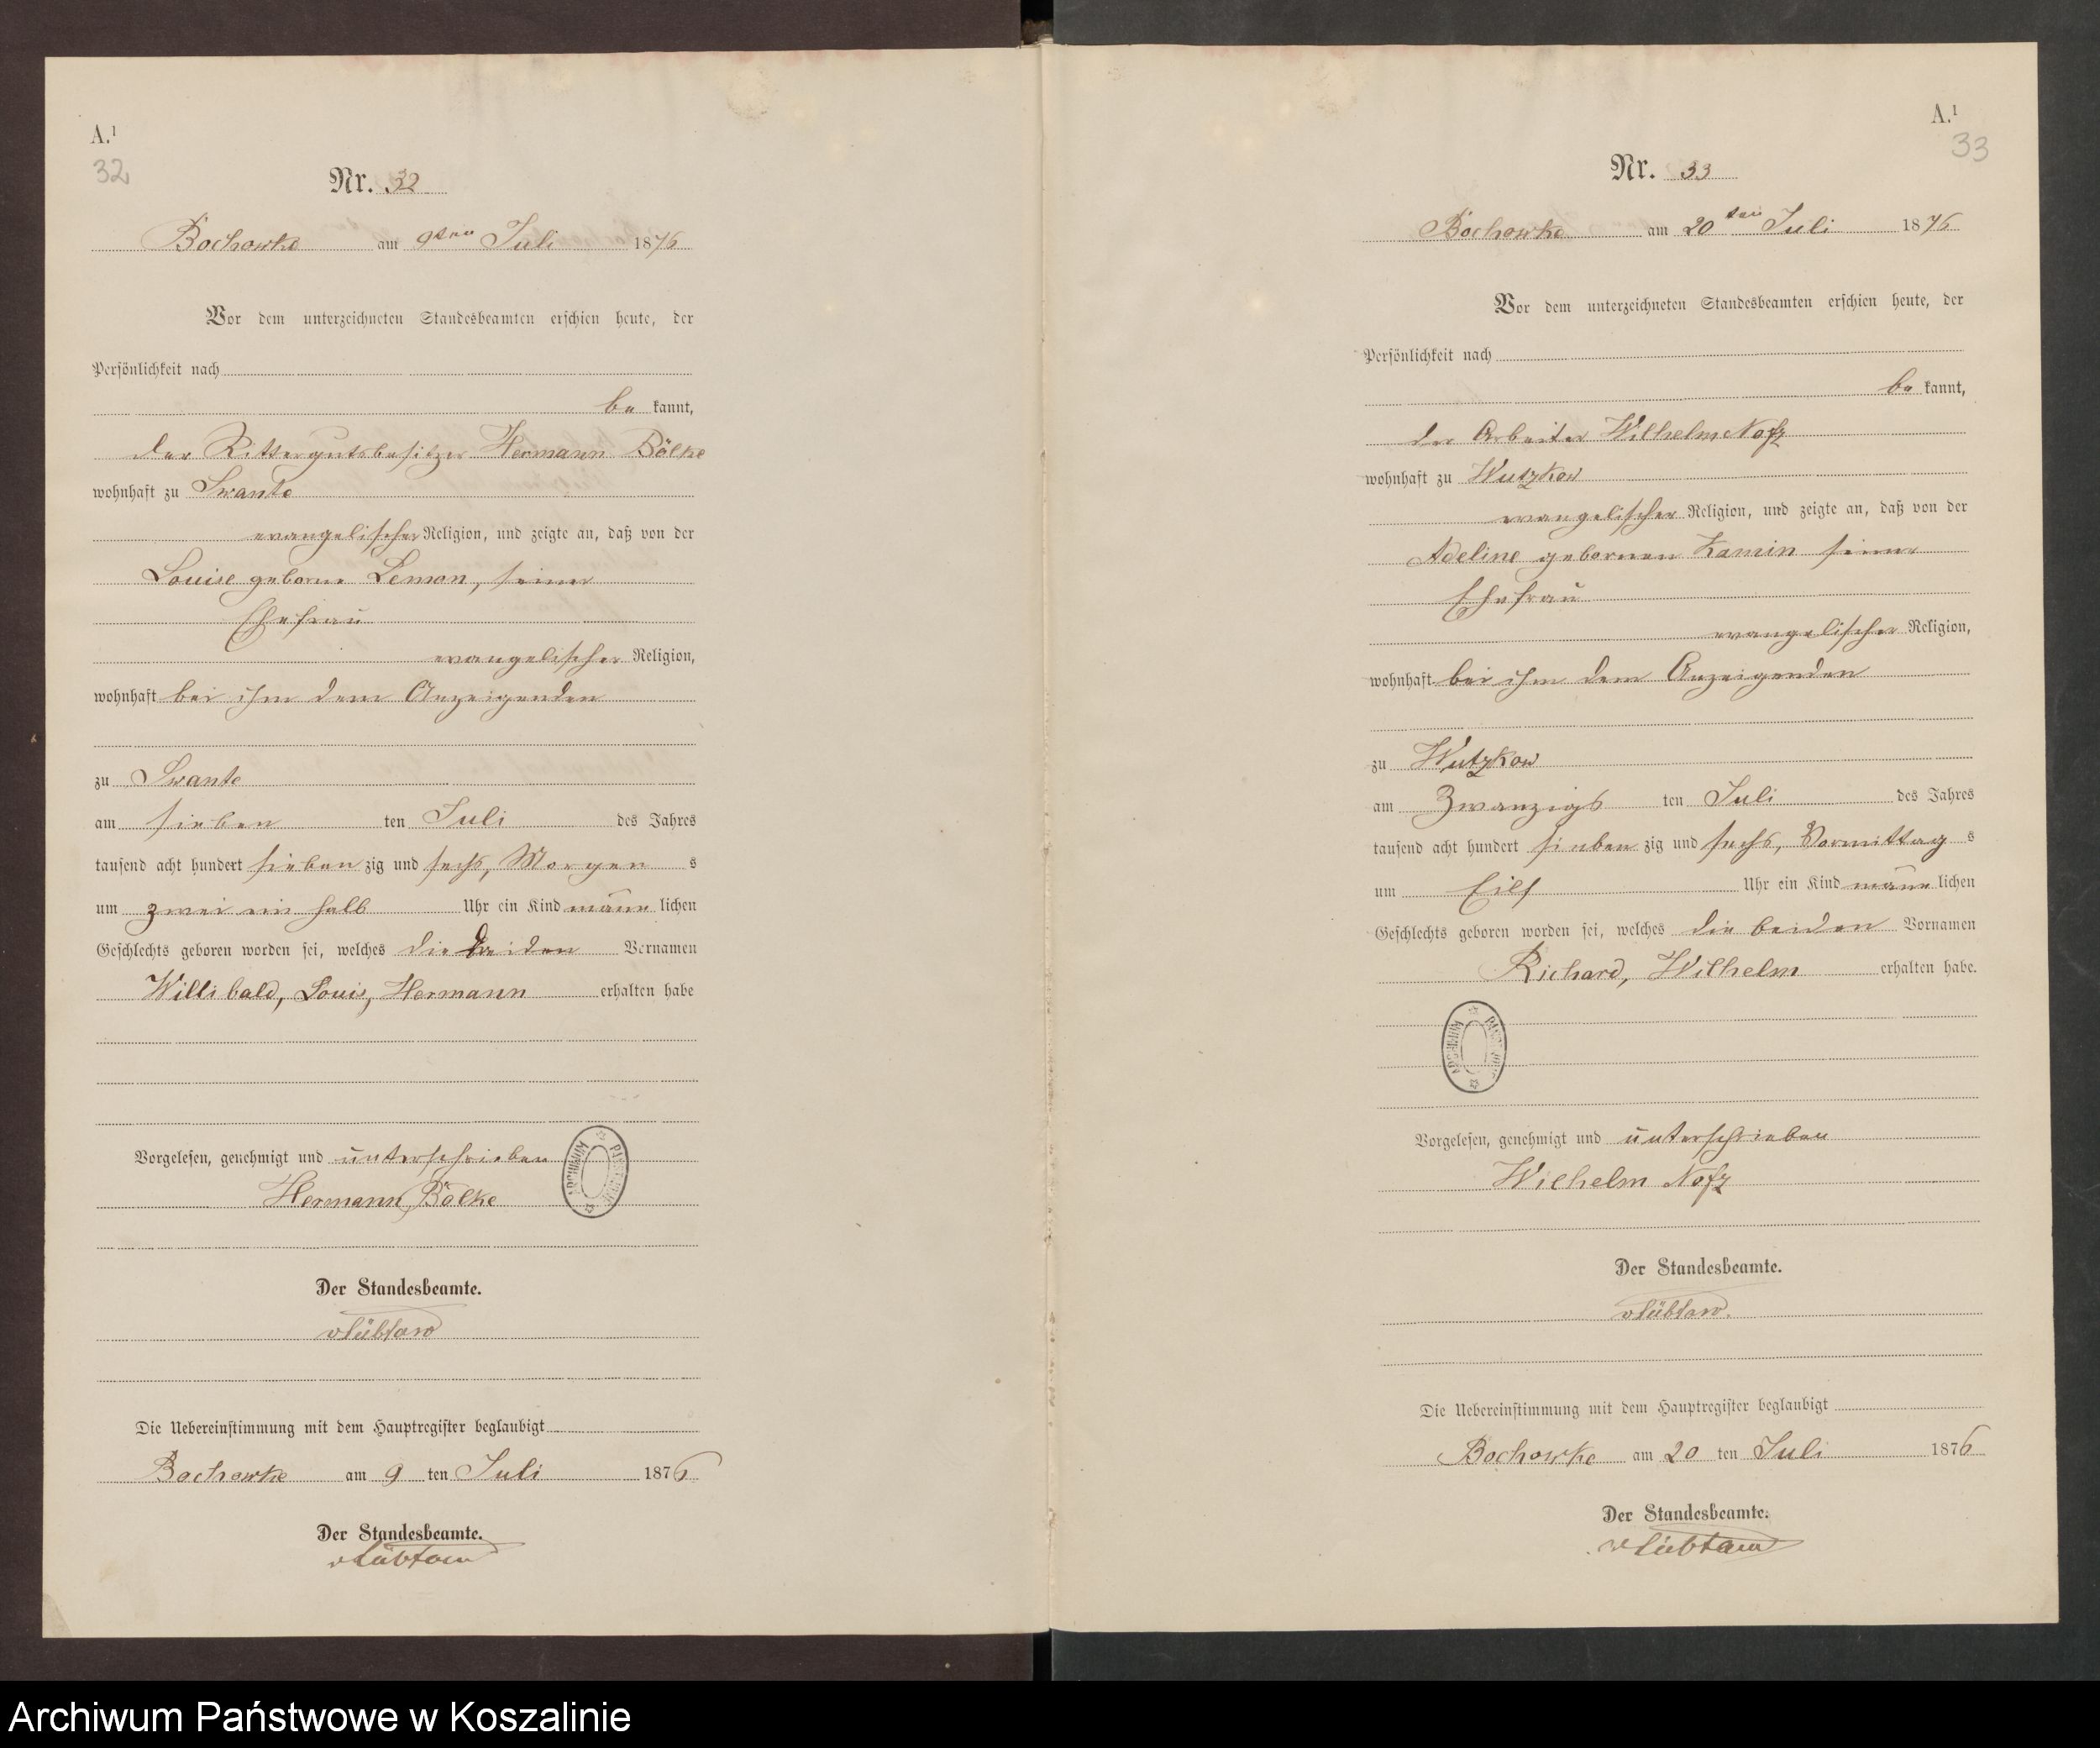 A.¹
32
Nr. 32
Bochowke am 9ten Juli 1876
Vor dem unterzeichneten Standesbeamten erschien heute, der
Persönlichkeit nach
be kannt,
der Rittergutsbesitzer Hermann Bölke
wohnhaft zu Swante
evangelischer Religion, und zeigte an, daß von der
Louise geborne Lemon, seiner
Ehefrau
evangelischer Religion,
wohnhaft bei ihm dem Anzeigenden
zu Swante
am sieben ten Juli des Jahres
tausend acht hundert sieben zig und sechs, Morgen s
um zwei ein halb Uhr ein Kind männ lichen
Geschlechts geboren worden sei, welches die Vornamen
Willibald, Louis, Hermann erhalten habe
Vorgelesen, genehmigt und unterschrieben
Hermann Bölke
Der Standesbeamte.
vLübtow
Die Uebereinstimmung mit dem Hauptregister beglaubigt
Bochowke am 9 ten Juli 1876
Der Standesbeamte.
vLübtow
A.¹
33
Nr. 33
Bochowke am 20ten Juli 1876
Vor dem unterzeichneten Standesbeamten erschien heute, der
Persönlichkeit nach
be kannt,
der Arbeiter Wilhelm Nofz
wohnhaft zu Wutzkow
evangelischer Religion, und zeigte an, daß von der
Adeline gebornen Kamin seiner
Ehefrau
evangelischer Religion,
wohnhaft bei ihm dem Anzeigenden
zu Wutzkow
am Zwanzigs ten Juli des Jahres
tausend acht hundert sieben zig und sechs, Vormittag s
um Eilf Uhr ein Kind männ lichen
Geschlechts geboren worden sei, welches die beiden Vornamen
Richard, Wilhelm erhalten habe.
Vorgelesen, genehmigt und unterschrieben
Wilhelm Nofz
Der Standesbeamte.
vLübtow.
Die Uebereinstimmung mit dem Hauptregister beglaubigt
Bochowke am 20 ten Juli 1876
Der Standesbeamte.
vLübtow
Archiwum Państwowe w Koszalinie